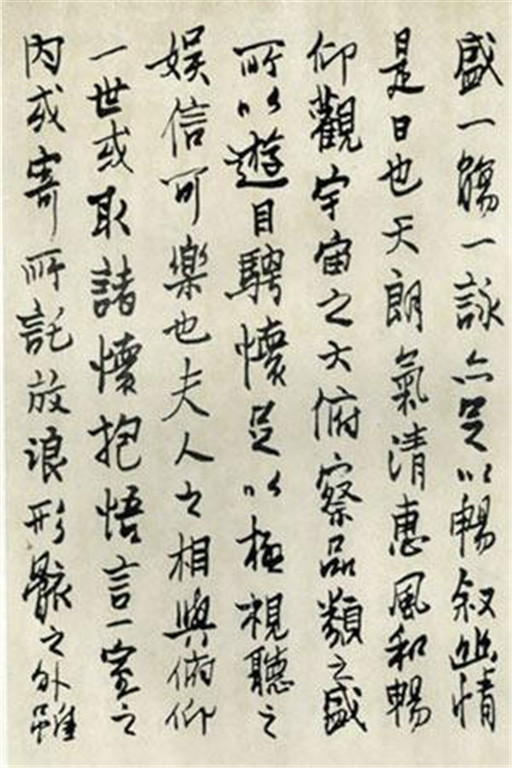 盛一觴一詠亦足以暢叙幽情
是日也天朗氣清惠風和暢
仰觀宇宙之大俯察品類之盛
所以遊目騁懷足以極視聽之
娛信可樂也夫人之相與俯仰
一世或取諸懷抱悟言一室之
內或寄所託放浪形骸之外雖